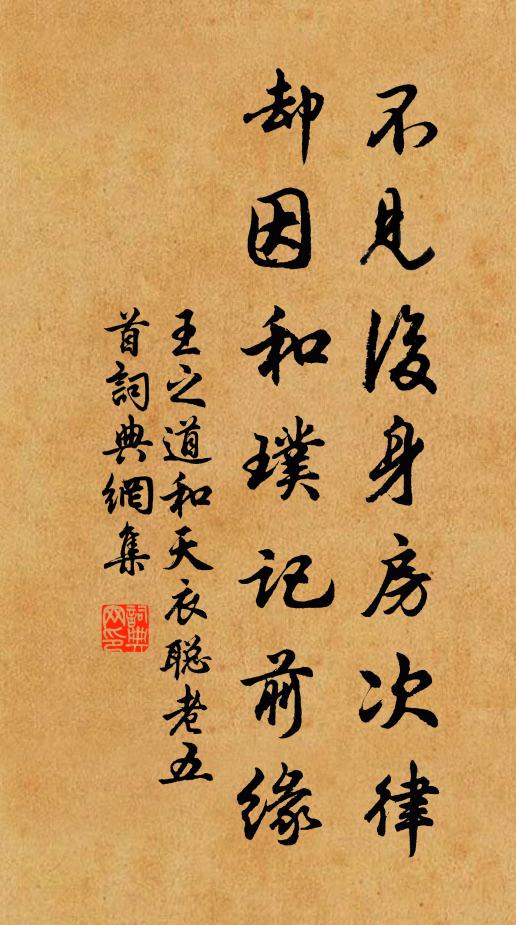 不見後身房次律
却因和璞記前緣
王之道和天衣聪老五
首詞典網集
詞典網印